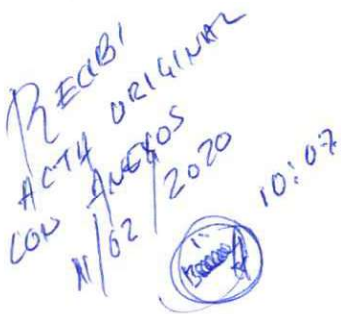 RECIBI
ACTA ORIGINAL
CON ANEXOS
11/02/2020 10:07